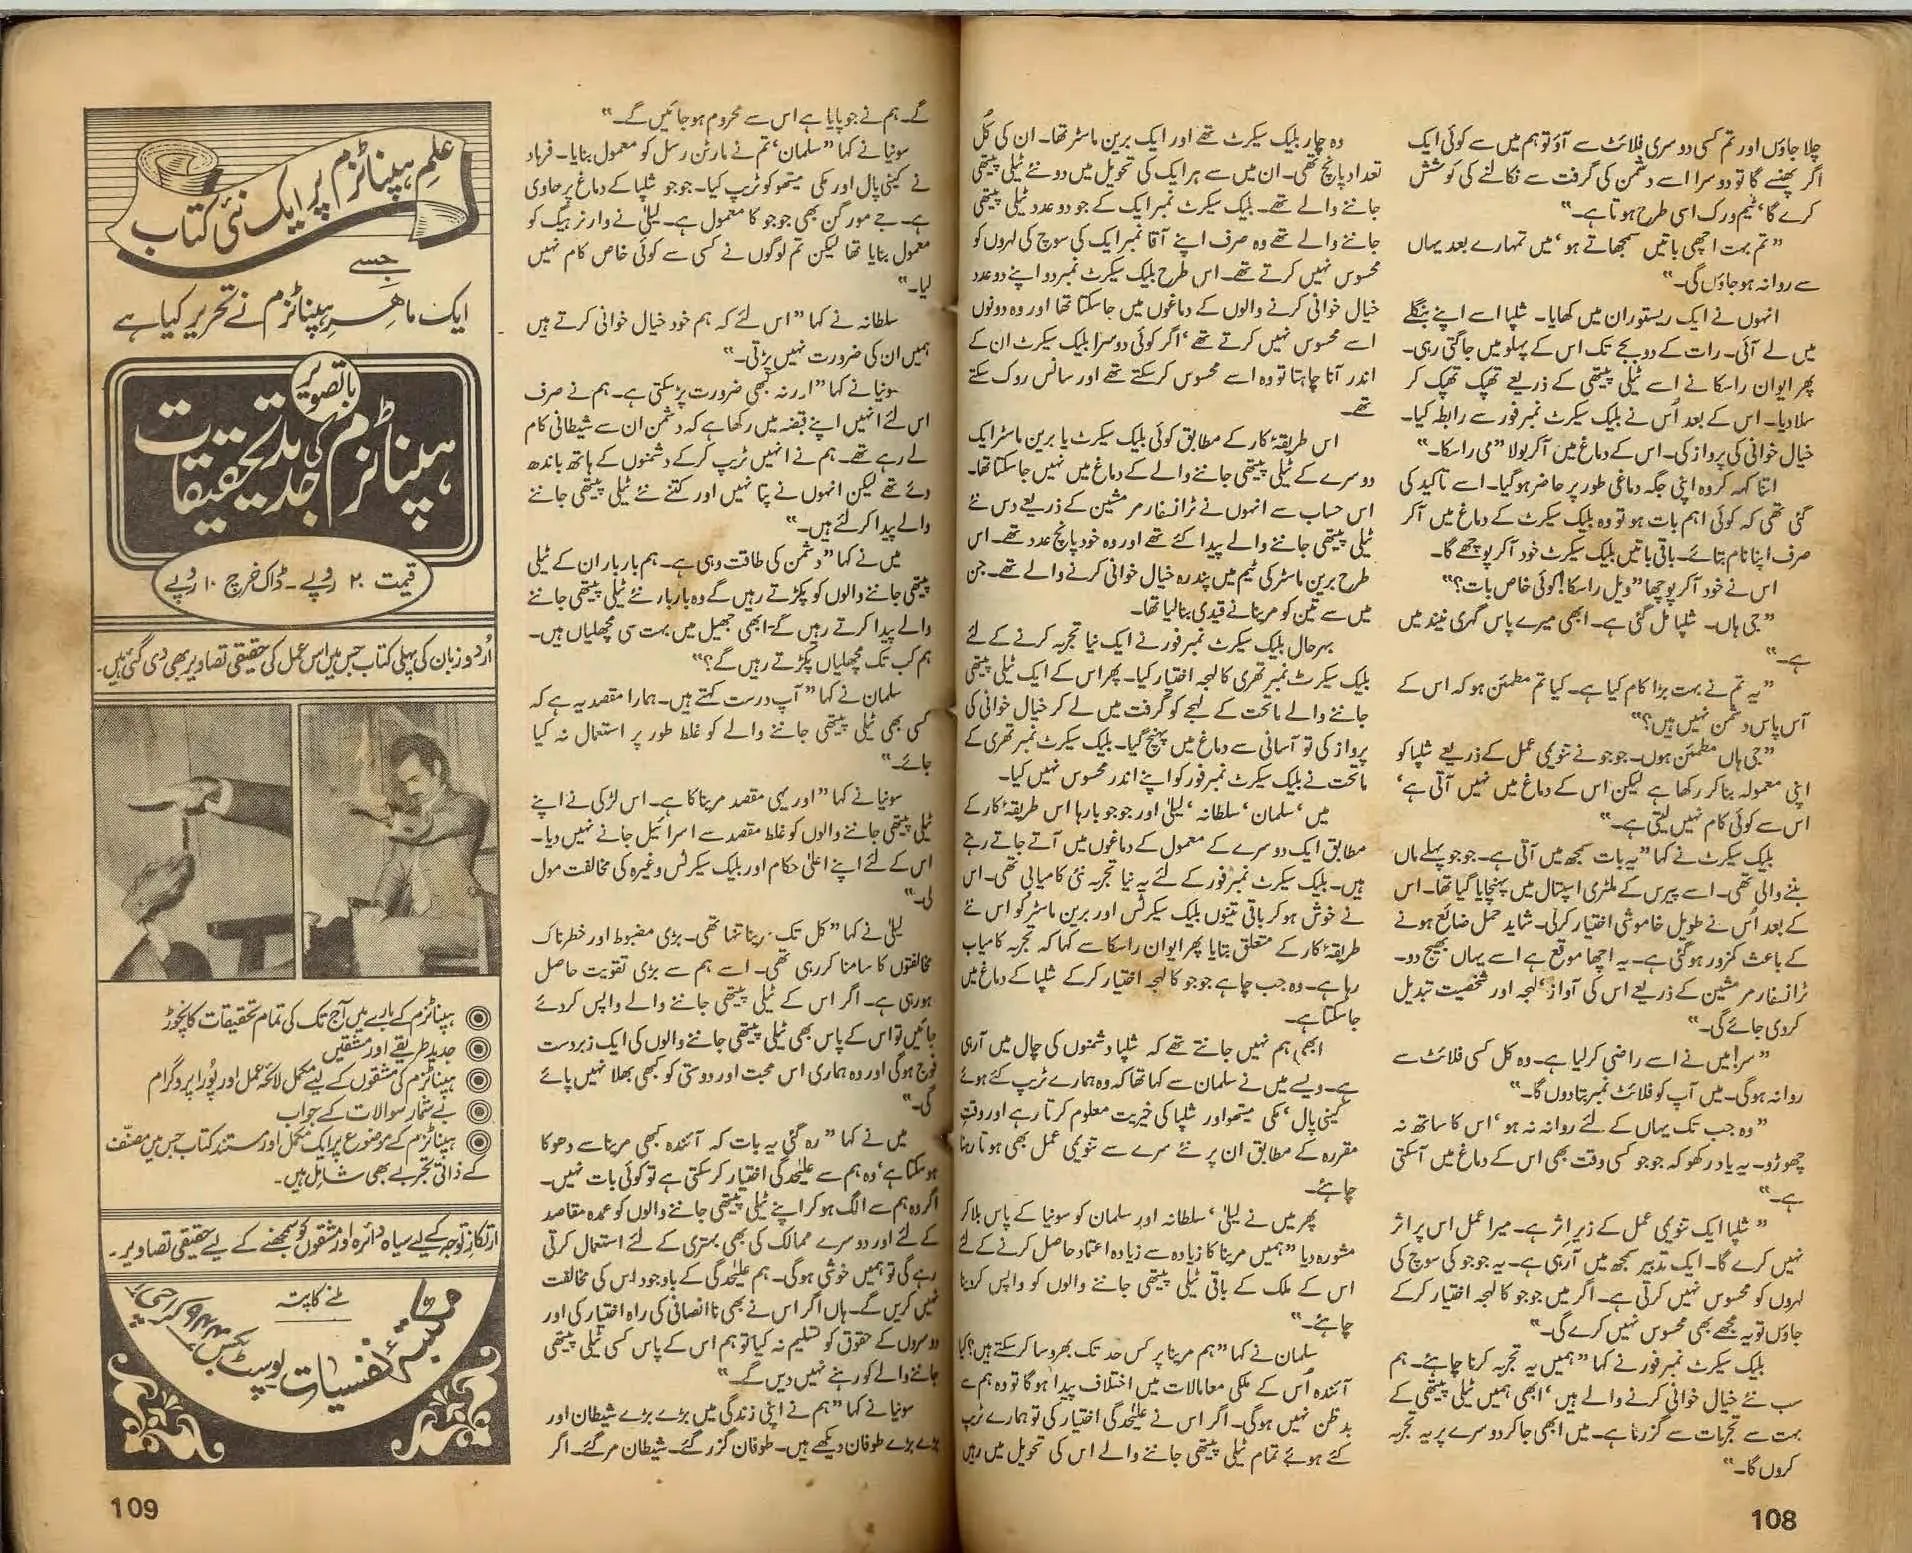 چلا جاؤں اور تم کسی دوسری فلائٹ سے آؤ تو ہم میں سے کوئی ایک
اگر پھنسے گا تو دوسرا اسے دشمن کی گرفت سے نکالنے کی کوشش
کرے گا، ٹیم ورک اسی طرح ہوتا ہے۔"
"تم بہت اچھی باتیں سمجھاتے ہو، میں تمہارے بعد یہاں
سے روانہ ہو جاؤں گی۔"
انہوں نے ایک ریستوران میں کھایا۔ شلپا اسے اپنے بنگلے
میں لے آئی۔ رات کے دو بجے تک اس کے پہلو میں جاگتی رہی۔
پھر ایوان راسکا نے اسے ٹیلی پیتھی کے ذریعے تھپک تھپک کر
سلا دیا۔ اس کے بعد اُس نے بلیک سیکرٹ نمبر فور سے رابطہ کیا۔
خیال خوانی کی پرواز کی۔ اس کے دماغ میں آکر بولا "می راسکا۔"
اتنا کہہ کر وہ اپنی جگہ دماغی طور پر حاضر ہو گیا۔ اسے تاکید کی
گئی تھی کہ کوئی اہم بات ہو تو وہ بلیک سیکرٹ کے دماغ میں آکر
صرف اپنا نام بتائے۔ باقی باتیں بلیک سیکرٹ خود آکر پوچھے گا۔
اس نے خود آکر پوچھا "ویل راسکا! کوئی خاص بات؟"
"جی ہاں۔ شلپا مل گئی ہے۔ ابھی میرے پاس گہری نیند میں
ہے۔"
"یہ تم نے بہت بڑا کام کیا ہے۔ کیا تم مطمئن ہو کہ اس کے
آس پاس دشمن نہیں ہیں؟"
"جی ہاں مطمئن ہوں۔ جوجو نے تنویمی عمل کے ذریعے شلپا کو
اپنی معمولہ بنا کر رکھا ہے لیکن اس کے دماغ میں نہیں آتی ہے،
اس سے کوئی کام نہیں لیتی ہے۔"
بلیک سیکرٹ نے کہا "یہ بات سمجھ میں آتی ہے۔ جوجو پہلے ماں
بننے والی تھی۔ اسے پیرس کے ملٹری اسپتال میں پہنچایا گیا تھا۔ اس
کے بعد اُس نے طویل خاموشی اختیار کرلی۔ شاید حمل ضائع ہونے
کے باعث کمزور ہو گئی ہے۔ یہ اچھا موقع ہے اسے یہاں بھیج دو۔
ٹرانسفارمر مشین کے ذریعے اس کی آواز، لہجہ اور شخصیت تبدیل
کردی جائے گی۔"
"سر! میں نے اسے راضی کرلیا ہے۔ وہ کل کسی فلائٹ سے
روانہ ہوگی۔ میں آپ کو فلائٹ نمبر بتا دوں گا۔"
"وہ جب تک یہاں کے لئے روانہ نہ ہو، اس کا ساتھ نہ
چھوڑو۔ یہ یاد رکھو کہ جوجو کسی وقت بھی اس کے دماغ میں آسکتی
ہے۔"
"شلپا ایک تنویمی عمل کے زیرِ اثر ہے۔ میرا عمل اس پر اثر
نہیں کرے گا۔ ایک تدبیر سمجھ میں آرہی ہے۔ یہ جوجو کی سوچ کی
لہروں کو محسوس نہیں کرتی ہے۔ اگر میں جوجو کا لہجہ اختیار کرکے
جاؤں تو یہ مجھے بھی محسوس نہیں کرے گی۔"
بلیک سیکرٹ نمبر فور نے کہا "ہمیں یہ تجربہ کرنا چاہئے۔ ہم
سب نئے خیال خوانی کرنے والے ہیں، ابھی ہمیں ٹیلی پیتھی کے
بہت سے تجربات سے گزرنا ہے۔ میں ابھی جا کر دوسرے پر یہ تجربہ
کروں گا۔"
108
وہ چار بلیک سیکرٹ تھے اور ایک برین ماسٹر تھا۔ ان کی کُل
تعداد پانچ تھی۔ ان میں سے ہر ایک کی تحویل میں دو نئے ٹیلی پیتھی
جاننے والے تھے۔ بلیک سیکرٹ نمبر ایک کے جو دو عدد ٹیلی پیتھی
جاننے والے تھے وہ صرف اپنے آقا نمبر ایک کی سوچ کی لہروں کو
محسوس نہیں کرتے تھے۔ اس طرح بلیک سیکرٹ نمبر دو اپنے دو عدد
خیال خوانی کرنے والوں کے دماغوں میں جاسکتا تھا اور وہ دونوں
اسے محسوس نہیں کرتے تھے، اگر کوئی دوسرا بلیک سیکرٹ ان کے
اندر آنا چاہتا تو وہ اسے محسوس کرسکتے تھے اور سانس روک سکتے
تھے۔
اس طریقۂ کار کے مطابق کوئی بلیک سیکرٹ یا برین ماسٹر ایک
دوسرے کے ٹیلی پیتھی جاننے والے کے دماغ میں نہیں جاسکتا تھا۔
اس حساب سے انہوں نے ٹرانسفارمر مشین کے ذریعے دس نئے
ٹیلی پیتھی جاننے والے پیدا کئے تھے اور وہ خود پانچ عدد تھے۔ اس
طرح برین ماسٹر کی ٹیم میں پندرہ خیال خوانی کرنے والے تھے۔ جن
میں سے تین کو مرینا نے قیدی بنا لیا تھا۔
بہرحال بلیک سیکرٹ نمبر فور نے ایک نیا تجربہ کرنے کے لئے
بلیک سیکرٹ نمبر تھری کا لہجہ اختیار کیا۔ پھر اس کے ایک ٹیلی پیتھی
جاننے والے ماتحت کے لہجے کو گرفت میں لے کر خیال خوانی کی
پرواز کی تو آسانی سے دماغ میں پہنچ گیا۔ بلیک سیکرٹ نمبر تھری کے
ماتحت نے بلیک سیکرٹ نمبر فور کو اپنے اندر محسوس نہیں کیا۔
میں، سلمان، سلطانہ، لیلیٰ اور جوجو بارہا اس طریقۂ کار کے
مطابق ایک دوسرے کے معمول کے دماغوں میں آتے جاتے رہے
ہیں۔ بلیک سیکرٹ نمبر فور کے لئے یہ نیا تجربہ نئی کامیابی تھی۔ اس
نے خوش ہو کر باقی تینوں بلیک سیکرٹس اور برین ماسٹر کو اس نئے
طریقۂ کار کے متعلق بتایا پھر ایوان راسکا سے کہا کہ تجربہ کامیاب
رہا ہے۔ وہ جب چاہے جوجو کا لہجہ اختیار کرکے شلپا کے دماغ میں
جاسکتا ہے۔
ابھی ہم نہیں جانتے تھے کہ شلپا دشمنوں کی چال میں آرہی
ہے۔ ویسے میں نے سلمان سے کہا تھا کہ وہ ہمارے ٹریپ کئے ہوئے
کینی پال، مکی میتھو اور شلپا کی خیریت معلوم کرتا رہے اور وقت
مقررہ کے مطابق ان پر نئے سرے سے تنویمی عمل بھی ہوتا رہنا
چاہئے۔
پھر میں نے لیلیٰ، سلطانہ اور سلمان کو سونیا کے پاس بلا کر
مشورہ دیا "ہمیں مرینا کا زیادہ سے زیادہ اعتماد حاصل کرنے کے لئے
اس کے ملک کے باقی ٹیلی پیتھی جاننے والوں کو واپس کردینا
چاہئے۔"
سلمان نے کہا "ہم مرینا پر کس حد تک بھروسا کرسکتے ہیں؟ کیا
آئندہ اُس کے ملکی معاملات میں اختلاف پیدا ہوگا تو وہ ہم سے
بدظن نہیں ہوگی۔ اگر اس نے علیحدگی اختیار کی تو ہمارے ٹریپ
کئے ہوئے تمام ٹیلی پیتھی جاننے والے اس کی تحویل میں رہیں
گے۔ ہم نے جو پایا ہے اس سے محروم ہو جائیں گے۔"
سونیا نے کہا "سلمان، تم نے مارٹن رسل کو معمول بنایا۔ فرہاد
نے کینی پال اور مکی میتھو کو ٹریپ کیا۔ جوجو شلپا کے دماغ پر حاوی
ہے۔ جے مورگن بھی جوجو کا معمول ہے۔ لیلیٰ نے وارنر بیک کو
معمول بنایا تھا لیکن تم لوگوں نے کسی سے کوئی خاص کام نہیں
لیا۔"
سلطانہ نے کہا "اس لئے کہ ہم خود خیال خوانی کرتے ہیں
ہمیں ان کی ضرورت نہیں پڑتی۔"
سونیا نے کہا "اور نہ کبھی ضرورت پڑسکتی ہے۔ ہم نے صرف
اس لئے انہیں اپنے قبضہ میں رکھا ہے کہ دشمن ان سے شیطانی کام
لے رہے تھے۔ ہم نے انہیں ٹریپ کرکے دشمنوں کے ہاتھ باندھ
دئے تھے لیکن انہوں نے پتا نہیں اور کتنے نئے ٹیلی پیتھی جاننے
والے پیدا کر لئے ہیں۔"
میں نے کہا "دشمن کی طاقت وہی ہے۔ ہم بار بار ان کے ٹیلی
پیتھی جاننے والوں کو پکڑتے رہیں گے وہ بار بار نئے ٹیلی پیتھی جاننے
والے پیدا کرتے رہیں گے۔ ابھی جھیل میں بہت سی مچھلیاں ہیں۔
ہم کب تک مچھلیاں پکڑتے رہیں گے؟"
سلمان نے کہا "آپ درست کہتے ہیں۔ ہمارا مقصد یہ ہے کہ
کسی بھی ٹیلی پیتھی جاننے والے کو غلط طور پر استعمال نہ کیا
جائے۔"
سونیا نے کہا "اور یہی مقصد مرینا کا ہے۔ اس لڑکی نے اپنے
ٹیلی پیتھی جاننے والوں کو غلط مقصد سے اسرائیل جانے نہیں دیا۔
اس کے لئے اپنے اعلیٰ حکام اور بلیک سیکرٹس وغیرہ کی مخالفت مول
لی۔"
لیلیٰ نے کہا "کل تک مرینا تنہا تھی۔ بڑی مضبوط اور خطرناک
مخالفتوں کا سامنا کررہی تھی۔ اسے ہم سے بڑی تقویت حاصل
ہورہی ہے۔ اگر اس کے ٹیلی پیتھی جاننے والے واپس کردئے
جائیں تو اس کے پاس بھی ٹیلی پیتھی جاننے والوں کی ایک زبردست
فوج ہوگی اور وہ ہماری اس محبت اور دوستی کو کبھی بھلا نہیں پائے
گی۔"
میں نے کہا "رہ گئی یہ بات کہ آئندہ کبھی مرینا سے دھوکا
ہوسکتا ہے، وہ ہم سے علیحدگی اختیار کرسکتی ہے تو کوئی بات نہیں۔
اگر وہ ہم سے الگ ہو کر اپنے ٹیلی پیتھی جاننے والوں کو عمدہ مقاصد
کے لئے اور دوسرے ممالک کی بھی بہتری کے لئے استعمال کرتی
رہے گی تو ہمیں خوشی ہوگی۔ ہم علیحدگی کے باوجود اس کی مخالفت
نہیں کریں گے۔ ہاں اگر اس نے بھی ناانصافی کی راہ اختیار کی اور
دوسروں کے حقوق کو تسلیم نہ کیا تو ہم اس کے پاس کسی ٹیلی پیتھی
جاننے والے کو رہنے نہیں دیں گے۔"
سونیا نے کہا "ہم نے اپنی زندگی میں بڑے بڑے شیطان اور
بڑے بڑے طوفان دیکھے ہیں۔ طوفان گزر گئے۔ شیطان مر گئے۔ اگر
علمِ ہپناٹزم پر ایک نئی کتاب
جسے
ایک ماہرِ ہپناٹزم نے تحریر کیا ہے
باتصویر
ہپناٹزم کی جدید تحقیقات
قیمت ۲۰ روپے۔ ڈاک خرچ ۱۰ روپے
اُردو زبان کی پہلی کتاب جس میں اس عمل کی حقیقی تصاویر بھی دی گئی ہیں۔
ہپناٹزم کے بارے میں آج تک کی تمام تحقیقات کا نچوڑ
جدید طریقے اور مشقیں
ہپناٹزم کی مشقوں کے لیے مکمل لائحہ عمل اور پُورا پروگرام
بے شمار سوالات کے جواب
ہپناٹزم کے موضوع پر ایک مکمل اور مستند کتاب جس میں مصنّف
کے ذاتی تجربے بھی شامل ہیں۔
ارتکازِ توجہ کے لیے سیاہ دائرہ اور مشقوں کو سمجھنے کے لیے حقیقی تصاویر۔
ملنے کا پتہ
مکتبۂ نفسیات پوسٹ بکس ۹۴۴ کراچی ۱
109